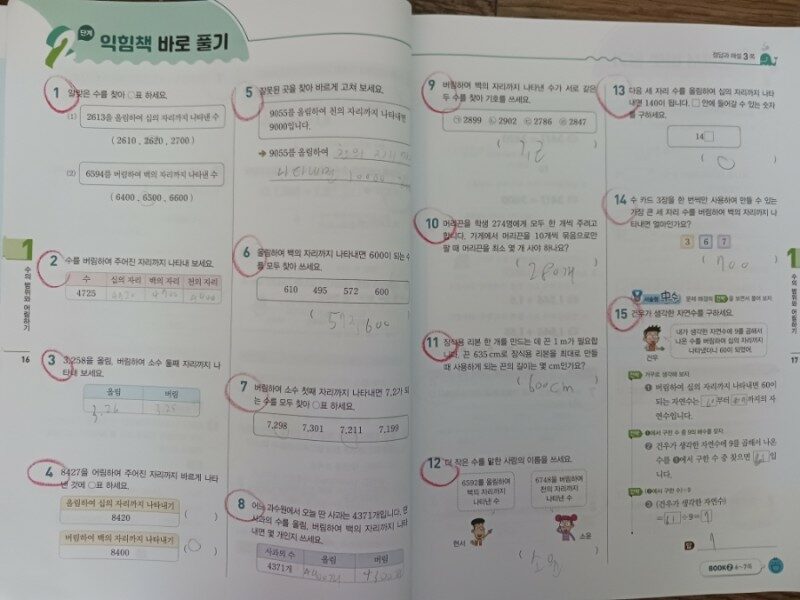 2 단계 익힘책 바로 풀기
1 알맞은 수를 찾아 ○표 하세요.
(1) 2613을 올림하여 십의 자리까지 나타낸 수
(2610, 2620, 2700)
(2) 6594를 버림하여 백의 자리까지 나타낸 수
(6400, 6500, 6600)
2 수를 버림하여 주어진 자리까지 나타내 보세요.
수 십의 자리 백의 자리 천의 자리
4725 4720 4700 4000
3 3.258을 올림, 버림하여 소수 둘째 자리까지 나
타내 보세요.
올림 버림
3.26 3.25
4 8427을 어림하여 주어진 자리까지 바르게 나타
낸 것에 ○표 하세요.
올림하여 십의 자리까지 나타내기
8420 ( )
버림하여 백의 자리까지 나타내기
8400 (○)
1
수의 범위와 어림하기
16
5 잘못된 곳을 찾아 바르게 고쳐 보세요.
9055를 올림하여 천의 자리까지 나타내면
9000입니다.
➔ 9055를 올림하여 천의 자리까지
나타내면 10000
6 올림하여 백의 자리까지 나타내면 600이 되는 수
를 모두 찾아 쓰세요.
610 495 572 600
(572, 600)
7 버림하여 소수 첫째 자리까지 나타내면 7.2가 되
는 수를 모두 찾아 ○표 하세요.
7.298 7.301 7.211 7.199
8 어느 과수원에서 오늘 딴 사과는 4371개입니다. 딴
사과의 수를 올림, 버림하여 백의 자리까지 나타
내면 몇 개인지 쓰세요.
사과의 수 올림 버림
4371개 4400개 4300개
정답과 해설 3쪽
9 버림하여 백의 자리까지 나타낸 수가 서로 같은
두 수를 찾아 기호를 쓰세요.
㉠ 2899 ㉡ 2902 ㉢ 2786 ㉣ 2847
( ㄱ, ㄹ )
10 머리끈을 학생 274명에게 모두 한 개씩 주려고
합니다. 가게에서 머리끈을 10개씩 묶음으로만
팔 때 머리끈을 최소 몇 개 사야 하나요?
(280개)
11 장식용 리본 한 개를 만드는 데 끈 1 m가 필요합
니다. 끈 635 cm로 장식용 리본을 최대로 만들
때 사용하게 되는 끈의 길이는 몇 cm인가요?
(600cm)
12 더 작은 수를 말한 사람의 이름을 쓰세요.
6592를 올림하여
백의 자리까지
나타낸 수
6748을 버림하여
천의 자리까지
나타낸 수
현서 소윤
(소윤)
13 다음 세 자리 수를 올림하여 십의 자리까지 나타
내면 140이 됩니다. □ 안에 들어갈 수 있는 숫자
를 구하세요.
14□
(0)
14 수 카드 3장을 한 번씩만 사용하여 만들 수 있는
가장 큰 세 자리 수를 버림하여 백의 자리까지 나
타내면 얼마인가요?
3 6 7
(700)
서술형 중심 문제 해결의 전략 을 보면서 풀어 보자.
15 건우가 생각한 자연수를 구하세요.
내가 생각한 자연수에 9를 곱해서
나온 수를 버림하여 십의 자리까지
나타냈더니 60이 되었어.
건우
전략 거꾸로 생각해 보자.
❶ 버림하여 십의 자리까지 나타내면 60이
되는 자연수는 부터 까지의 자
연수입니다.
전략 ❶에서 구한 수 중 9의 배수를 찾자.
❷ 건우가 생각한 자연수에 9를 곱해서 나온
수를 ❶에서 구한 수 중 찾으면 입
니다.
전략 (❷에서 구한 수)÷9
❸ (건우가 생각한 자연수)
= ÷9=
답
BOOK 2 6~7쪽
1
수의 범위와 어림하기
17